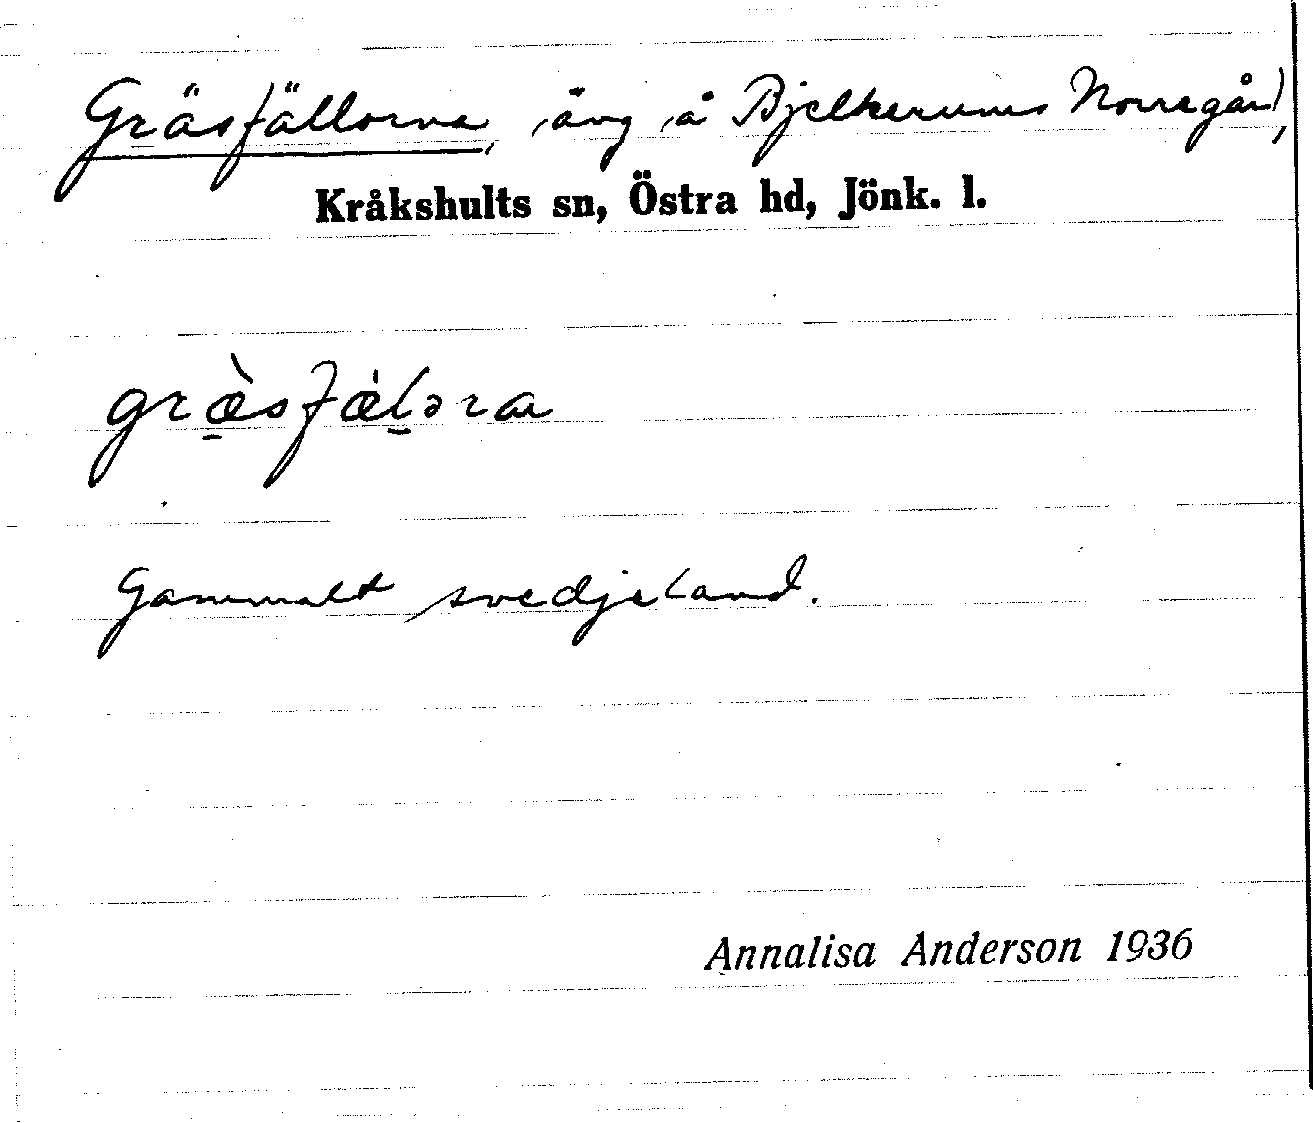 Gräsfällorna, äng å Bjelkerums Norregård,
Kråkshults sn, Östra hd, Jönk. l.
græ̠̀sfæ̍l̠əra
Gammalt svedjeland.
Annalisa Anderson 1936